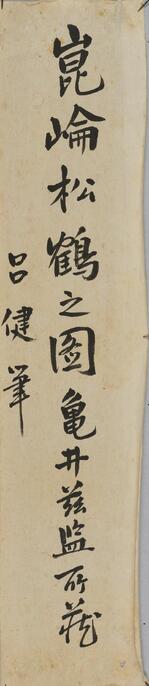 崑崘松鶴之図亀井茲監所蔵
呂健筆